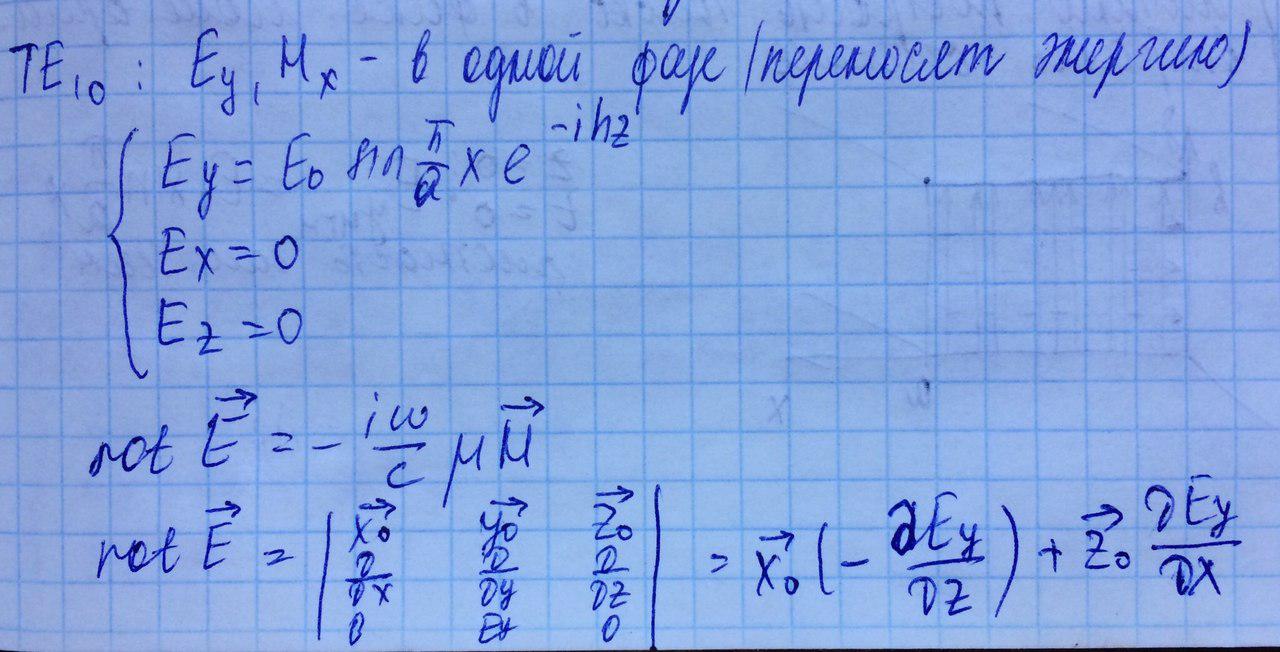 TE₁₀ : Ey, Hx - в одной фазе (переносят энергию)
Ey = E₀ sin π/a x e^(-ihz)
Ex = 0
Ez = 0
rot E⃗ = - iω/c μH⃗
rot E⃗ = | x⃗₀ y⃗₀ z⃗₀ | = x⃗₀ (- ∂Ey/∂z) + z⃗₀ ∂Ey/∂x
∂/∂x ∂/∂y ∂/∂z
0 Ey 0